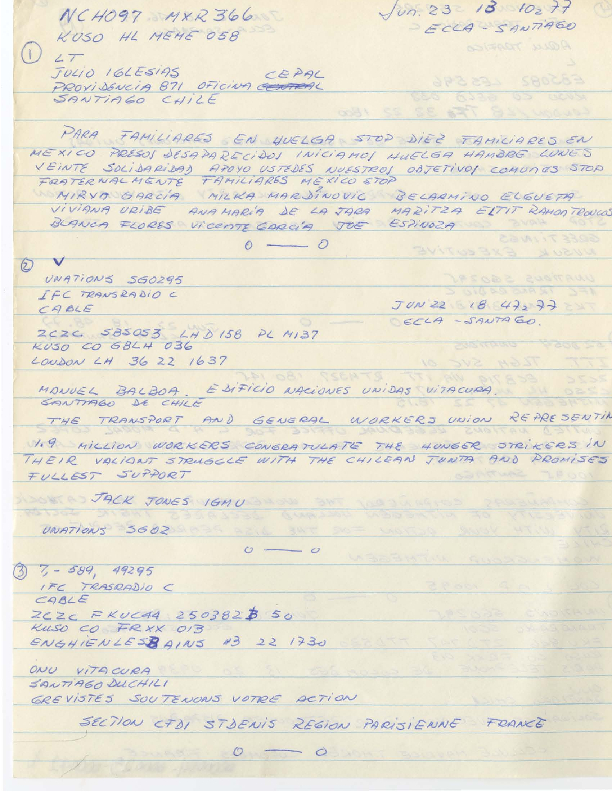 NCH097 MXR366
JUN. 23 13 10 22 77
KUSO HL MEME 058
ECLA - SANTIAGO
① LT
JULIO IGLESIAS CEPAL
PROVIDENCIA 871 OFICINA CENTRAL
SANTIAGO CHILE
PARA FAMILIARES EN HUELGA STOP DIEZ FAMILIARES EN
MEXICO PRESOS DESAPARECIDOS INICIAMOS HUELGA HAMBRE LUNES
VEINTE SOLIDARIDAD APOYO USTEDES NUESTROS OBJETIVOS COMUNES STOP
FRATERNALMENTE FAMILIARES MEXICO STOP
MIRVA GARCIA MILKA MARDINOVIC BELARMINO ELGUETA
VIVIANA URIBE ANA MARÍA DE LA JARA MARITZA ELTIT RAMON TRONCOS
BLANCA FLORES VICENTE GARCÍA JOE ESPINOZA
0 — 0
② V
UNATIONS SG0295
IFC TRANSRADIO C
CABLE
JUN 22 18 47 22 77
ECLA - SANTAGO.
ZCZC SBS053 LHD158 PL M137
KUSO CO GBLH 036
LONDON LH 36 22 1637
MANUEL BALBOA. EDIFICIO NACIONES UNIDAS VITACURA.
SANTIAGO DE CHILE
THE TRANSPORT AND GENERAL WORKERS UNION REPRESENTIN
1.9 MILLION WORKERS CONGRATULATE THE HUNGER STRIKERS IN
THEIR VALIANT STRUGGLE WITH THE CHILEAN JUNTA AND PROMISES
FULLEST SUPPORT
JACK JONES IGMU
UNATIONS SG02
0 — 0
③ 7,- 589, 49295
IFC TRASRADIO C
CABLE
ZCZC FKUC44 250382 50
KUSO CO FRXX 013
ENGHIENLESBAINS #3 22 1730
ONU VITACURA
SANTIAGO DUCHILI
GREVISTES SOUTENONS VOTRE ACTION
SECTION CFDI STDENIS REGION PARISIENNE FRANCE
0 — 0